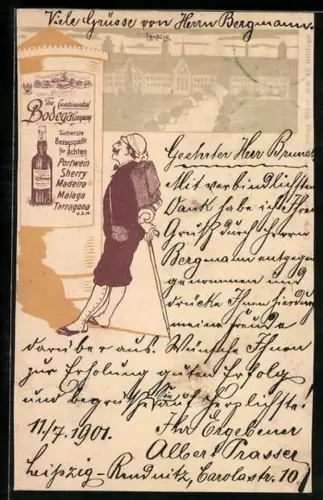 Viele Grüsse von Herrn Bergmann.
Leipzig
The Continental
Bodega Company
Sicherste
Bezugsquelle
für ächten
Portwein
Sherry
Madeira
Malaga
Tarragona
u.s.w.
Geehrter Herr Brunet
Mit verbindlichsten
Dank habe ich Ihren
Gruß durch Herrn
Bergmann entgegen
genommen und
drücke Ihnen hierdurch
meine Freude
darüber aus. Wünsche Ihnen
zur Erholung guten Erfolg
und begrüße Sie auf herzlichste!
Ihr Ergebener
11/7. 1901.
Albert Prasser
Leipzig-Reudnitz, Carolastr. 10